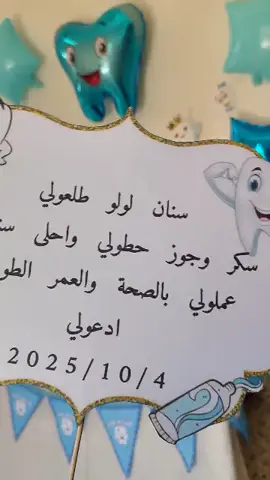 سنان لولو طلعولي
سكر وجوز حطولي واحلى
عملولي بالصحة والعمر
ادعولي
2025/10/4